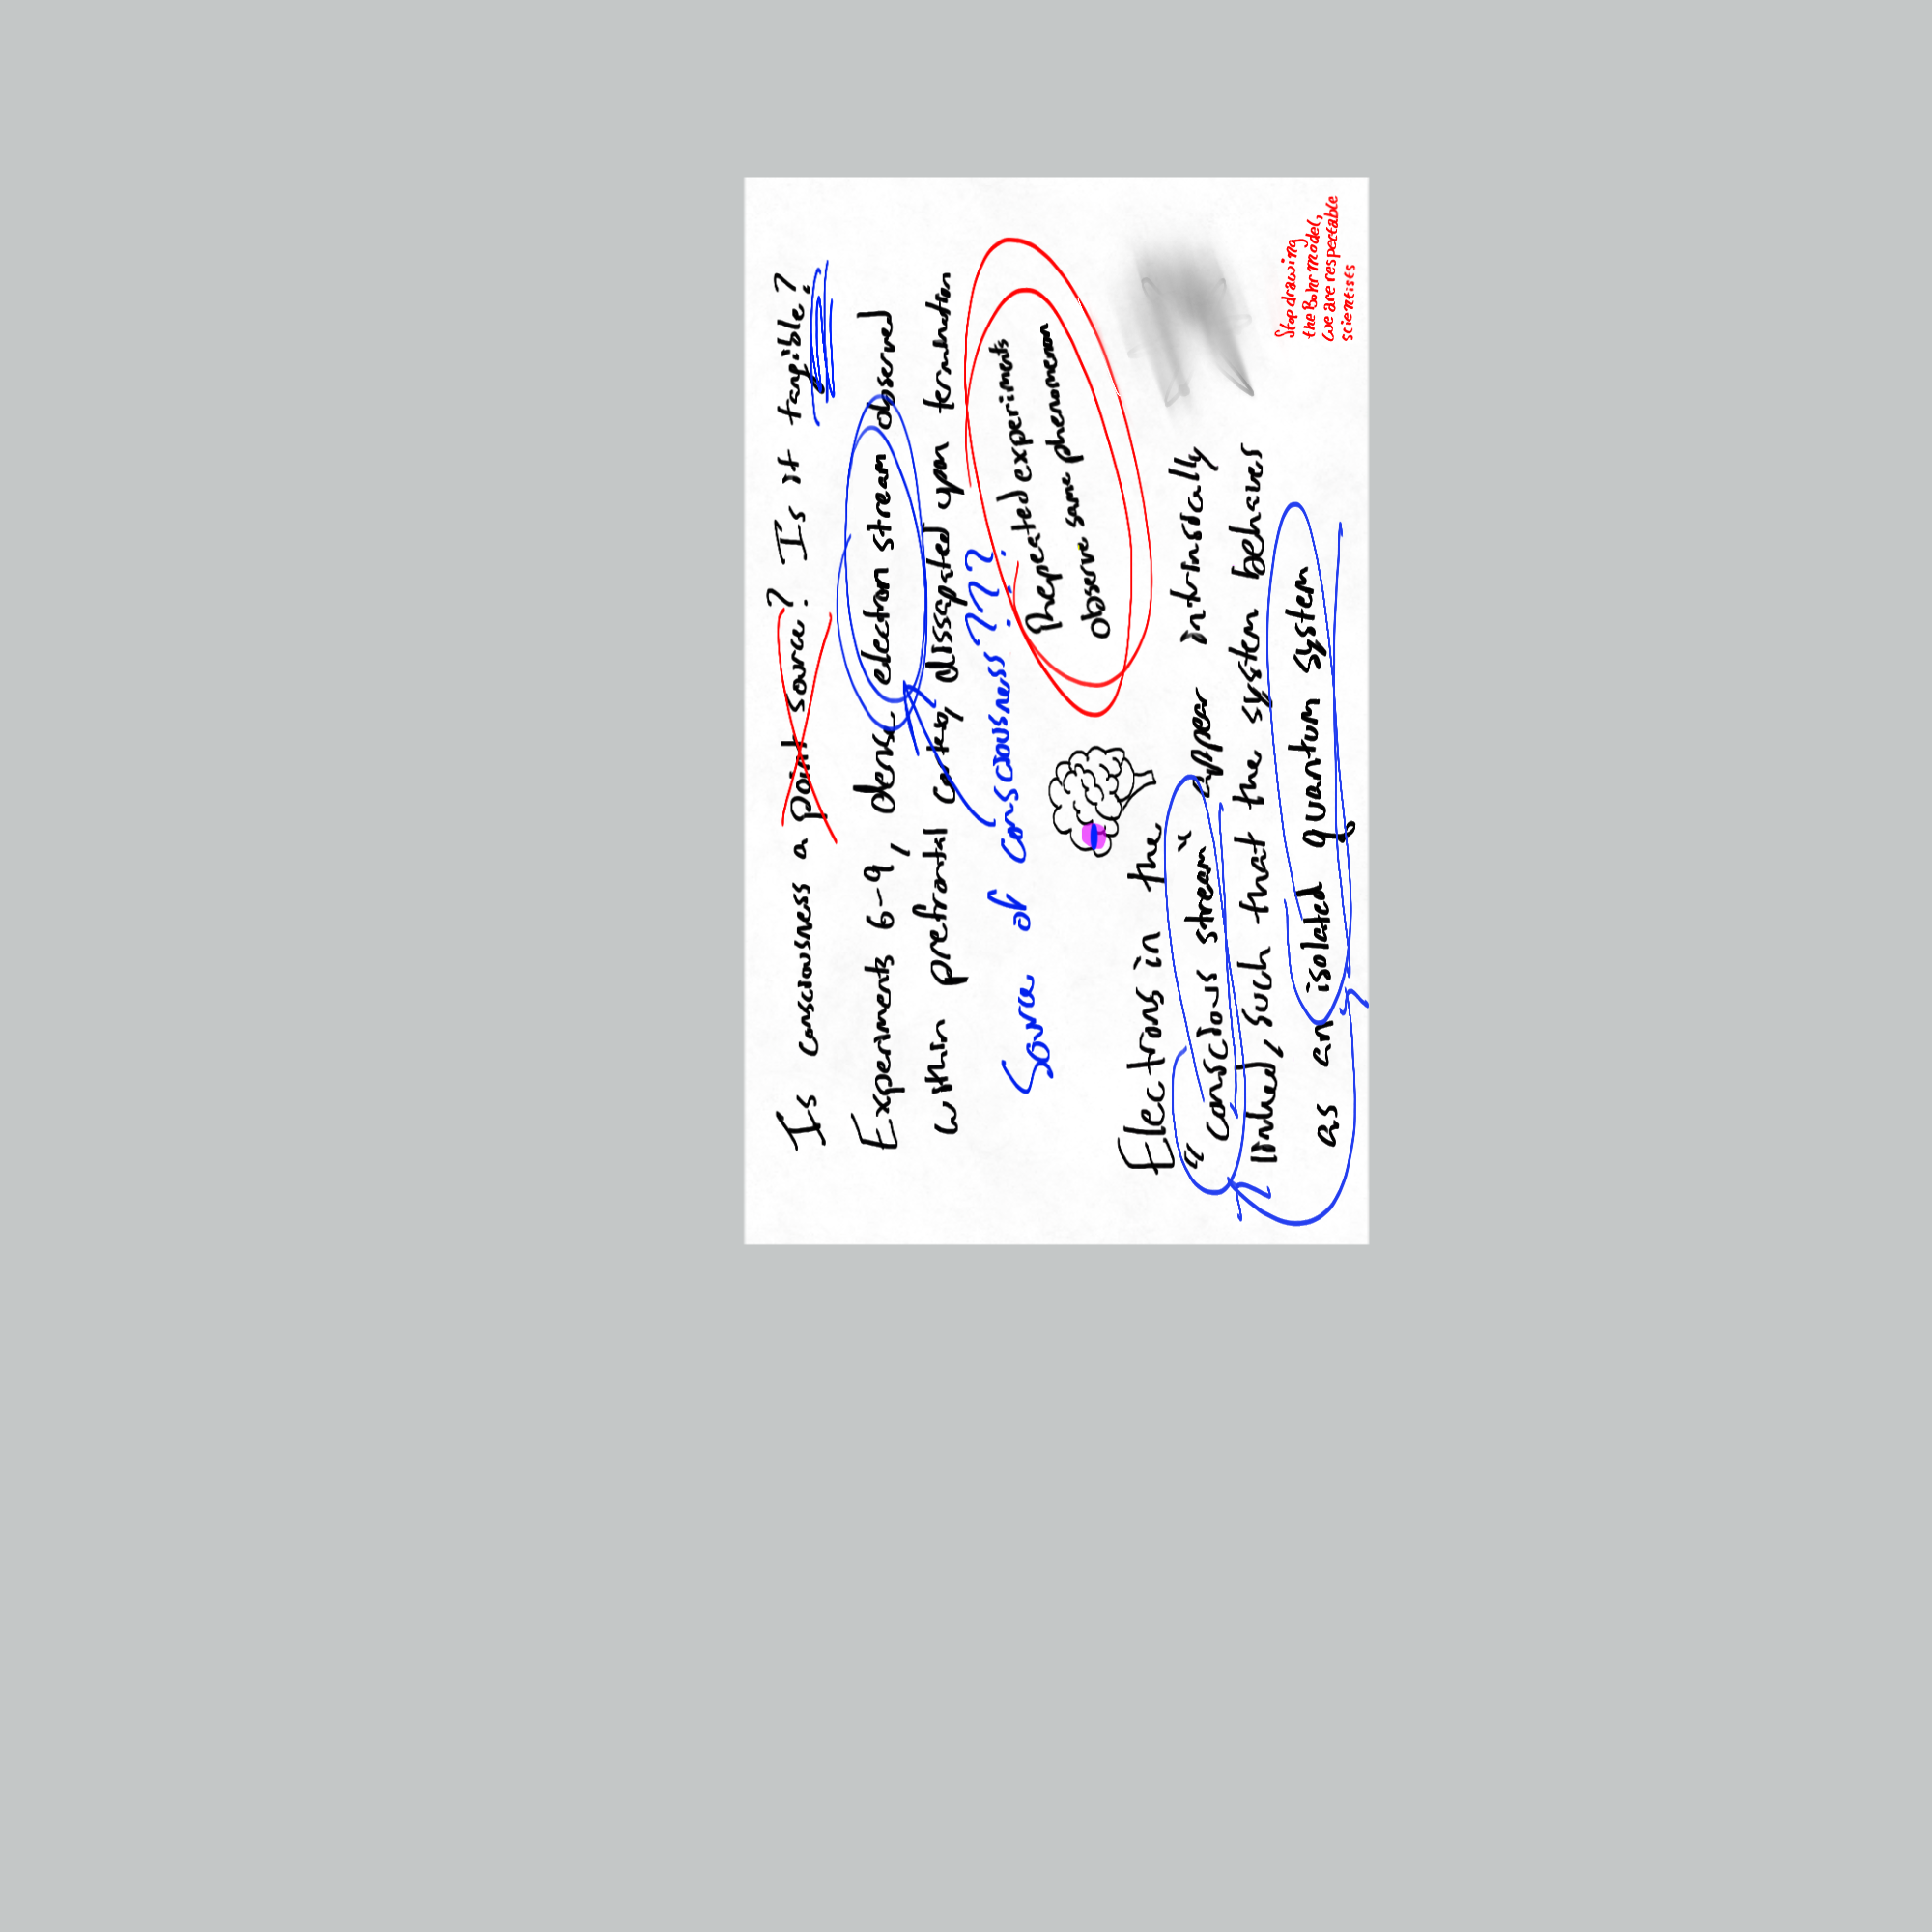 Is consciousness a point source? Is it tangible?
Experiments 6-9, dense electron stream observed
within prefrontal cortex, dissapated upon termination
Source of consciousness???
Repeated experiments
observe same phenomenon
Electrons in the
"conscious stream" appear intrinsically
linked, such that the system behaves
as an isolated quantum system
Stop drawing
the Bohr model,
we are respectable
scientists